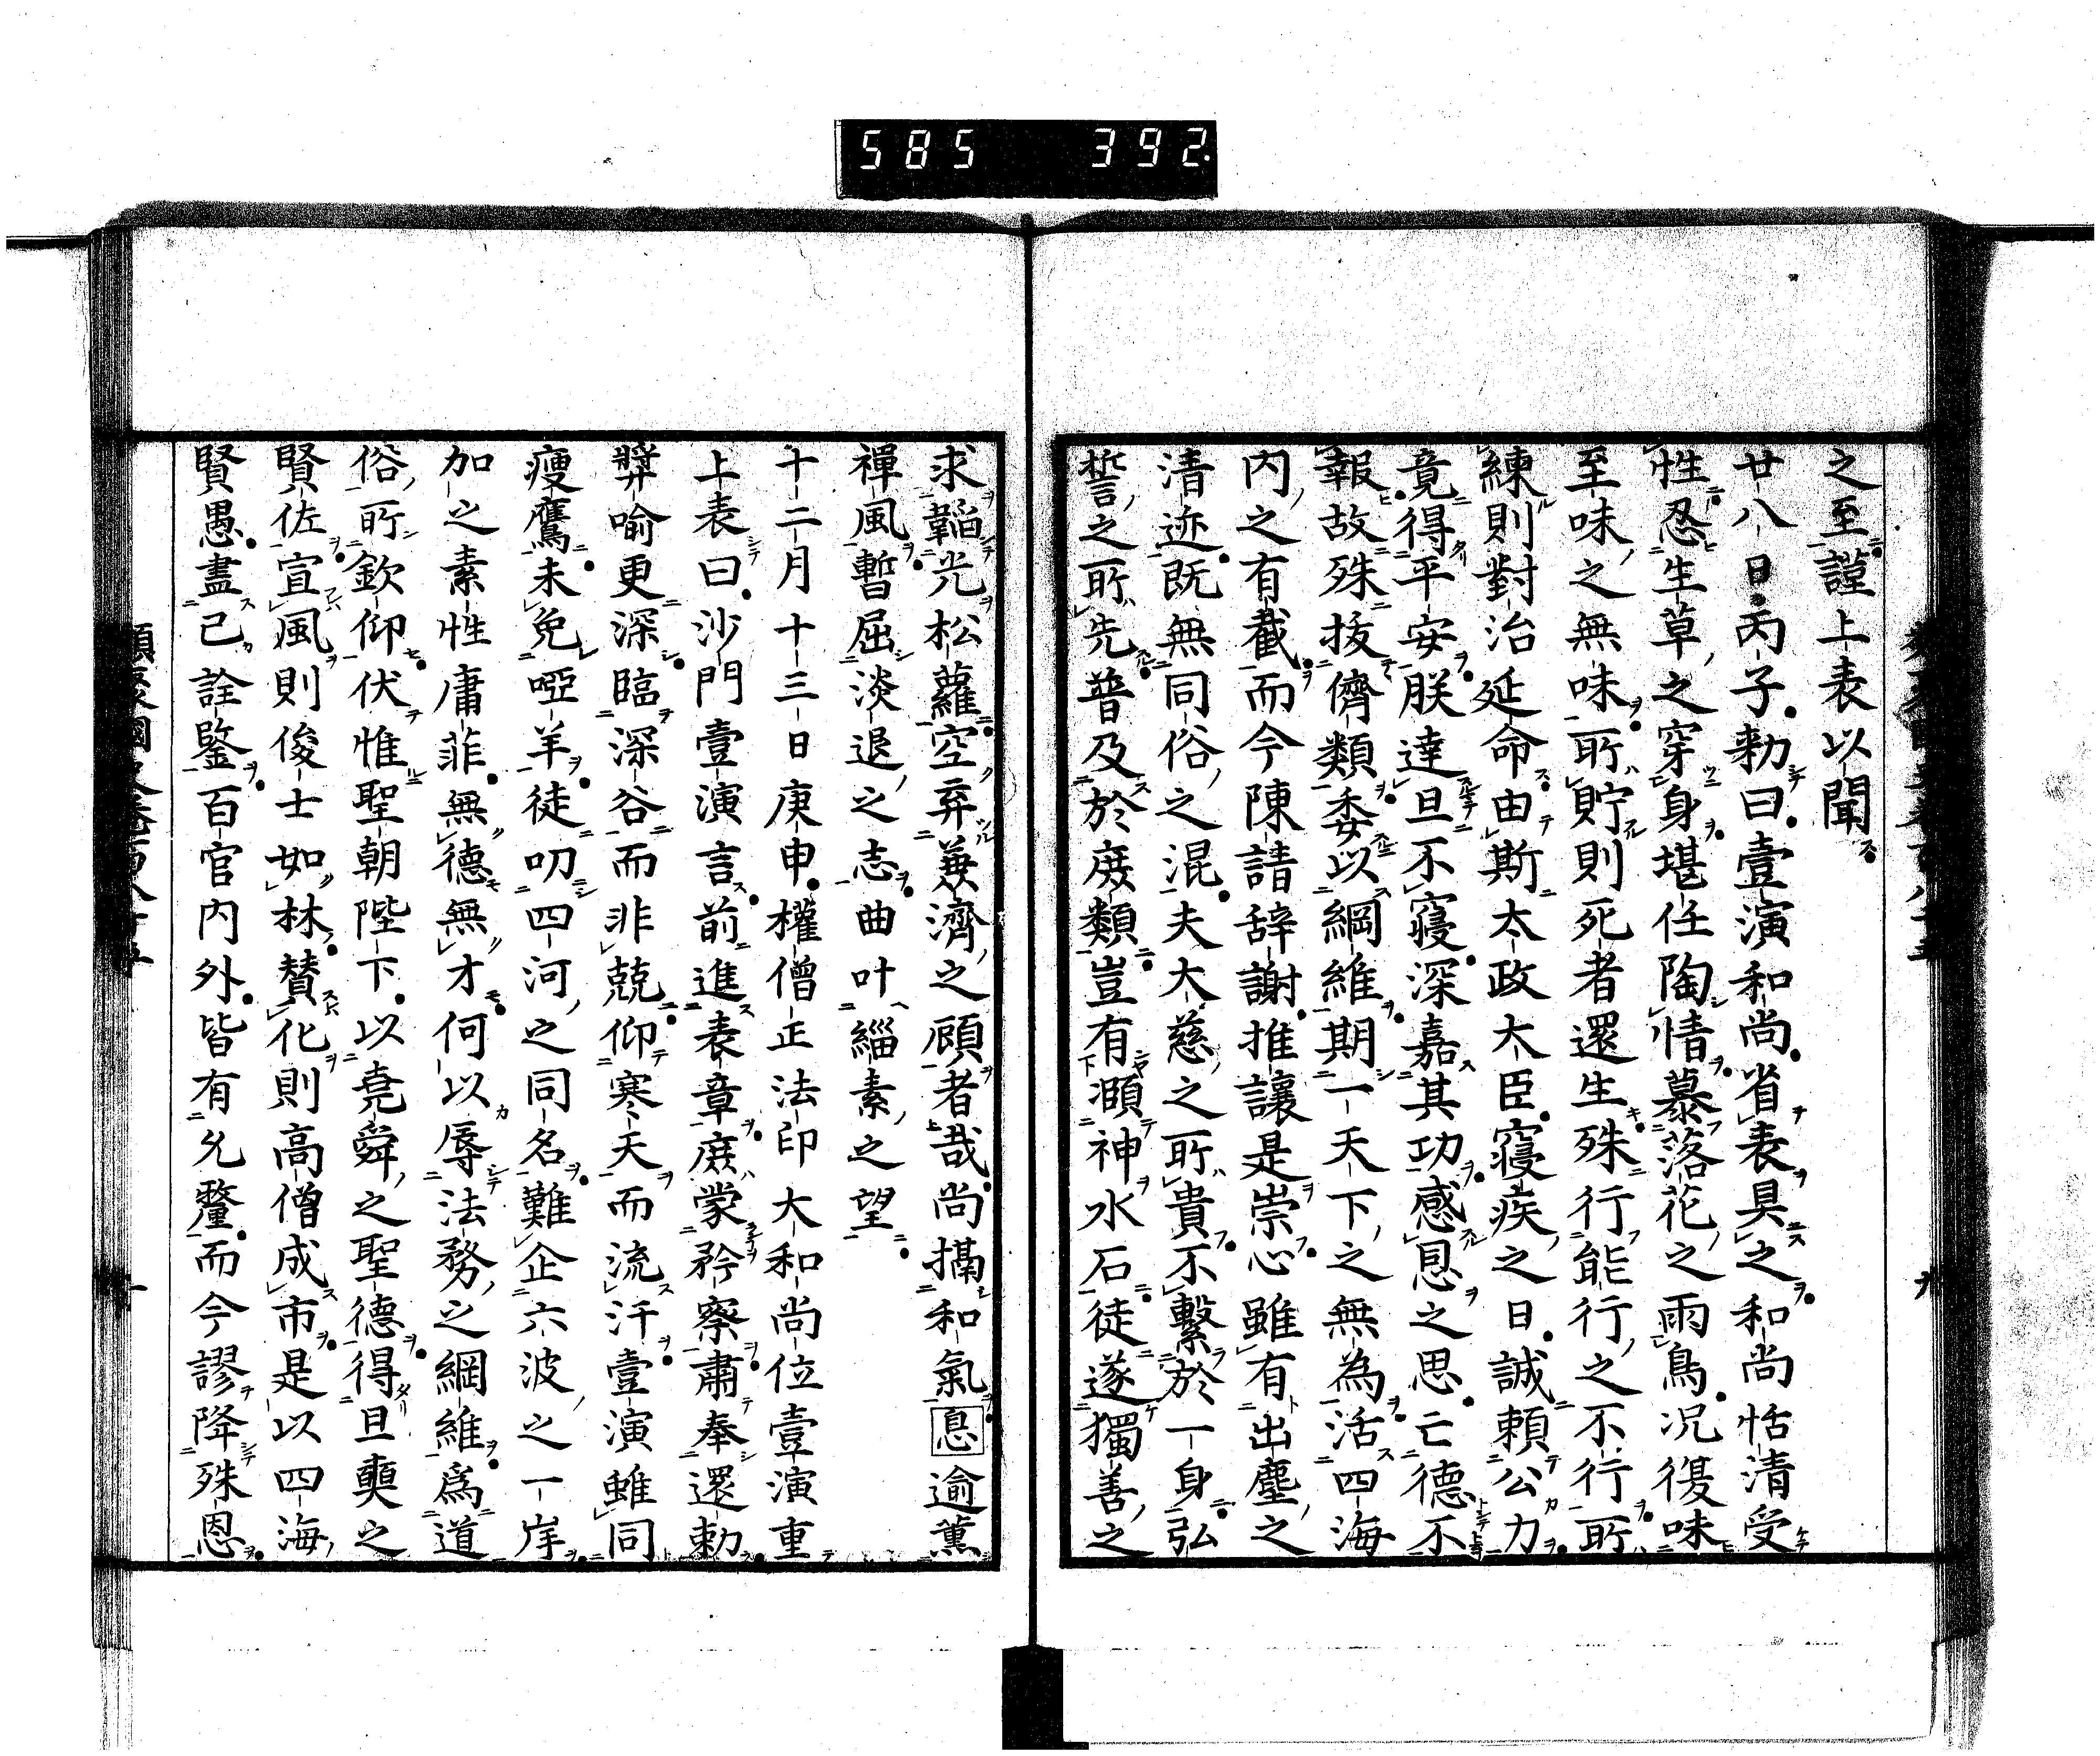 585 392
之至謹上表以聞
廿八日丙子勅曰壹演和尚省表具之和尚恬清受
性忍生草之穿身堪任陶情慕落花之雨鳥况復味
至味之無味所貯則死者還生殊行能行之不行所
練則對治延命由斯太政大臣寢疾之日誠頼公力
竟得平安朕達旦不寢深嘉其功感恩之思亡德不
報故殊抜儕類委以綱維期一天下之無為活四海
内之有截而今陳請辞謝推讓是崇心雖有出塵之
清迹既無同俗之混夫大慈之所貴不繫於一身弘
誓之所先普及於庶類豈有灝神水石徒遂獨善之
求韜光松蘿空弃兼濟之願者哉尚摛和氣息逾薫
禪風暫屈淡退之志曲叶緇素之望
十二月十三日庚申權僧正法印大和尚位壹演重
上表曰沙門壹演言前進表章庶蒙矜察肅奉還勅
奨喻更深臨深谷而非兢仰寒天而流汗壹演雖同
瘦鷹未免啞羊徒叨四河之同名難企六波之一岸
加之素性庸菲無德無才何以辱法務之綱維爲道
俗所欽仰伏惟聖朝陛下以堯舜之聖德得旦奭之
賢佐宣風則俊士如林賛化則高僧成市是以四海
賢愚盡己詮鑒百官内外皆有允釐而今謬降殊恩